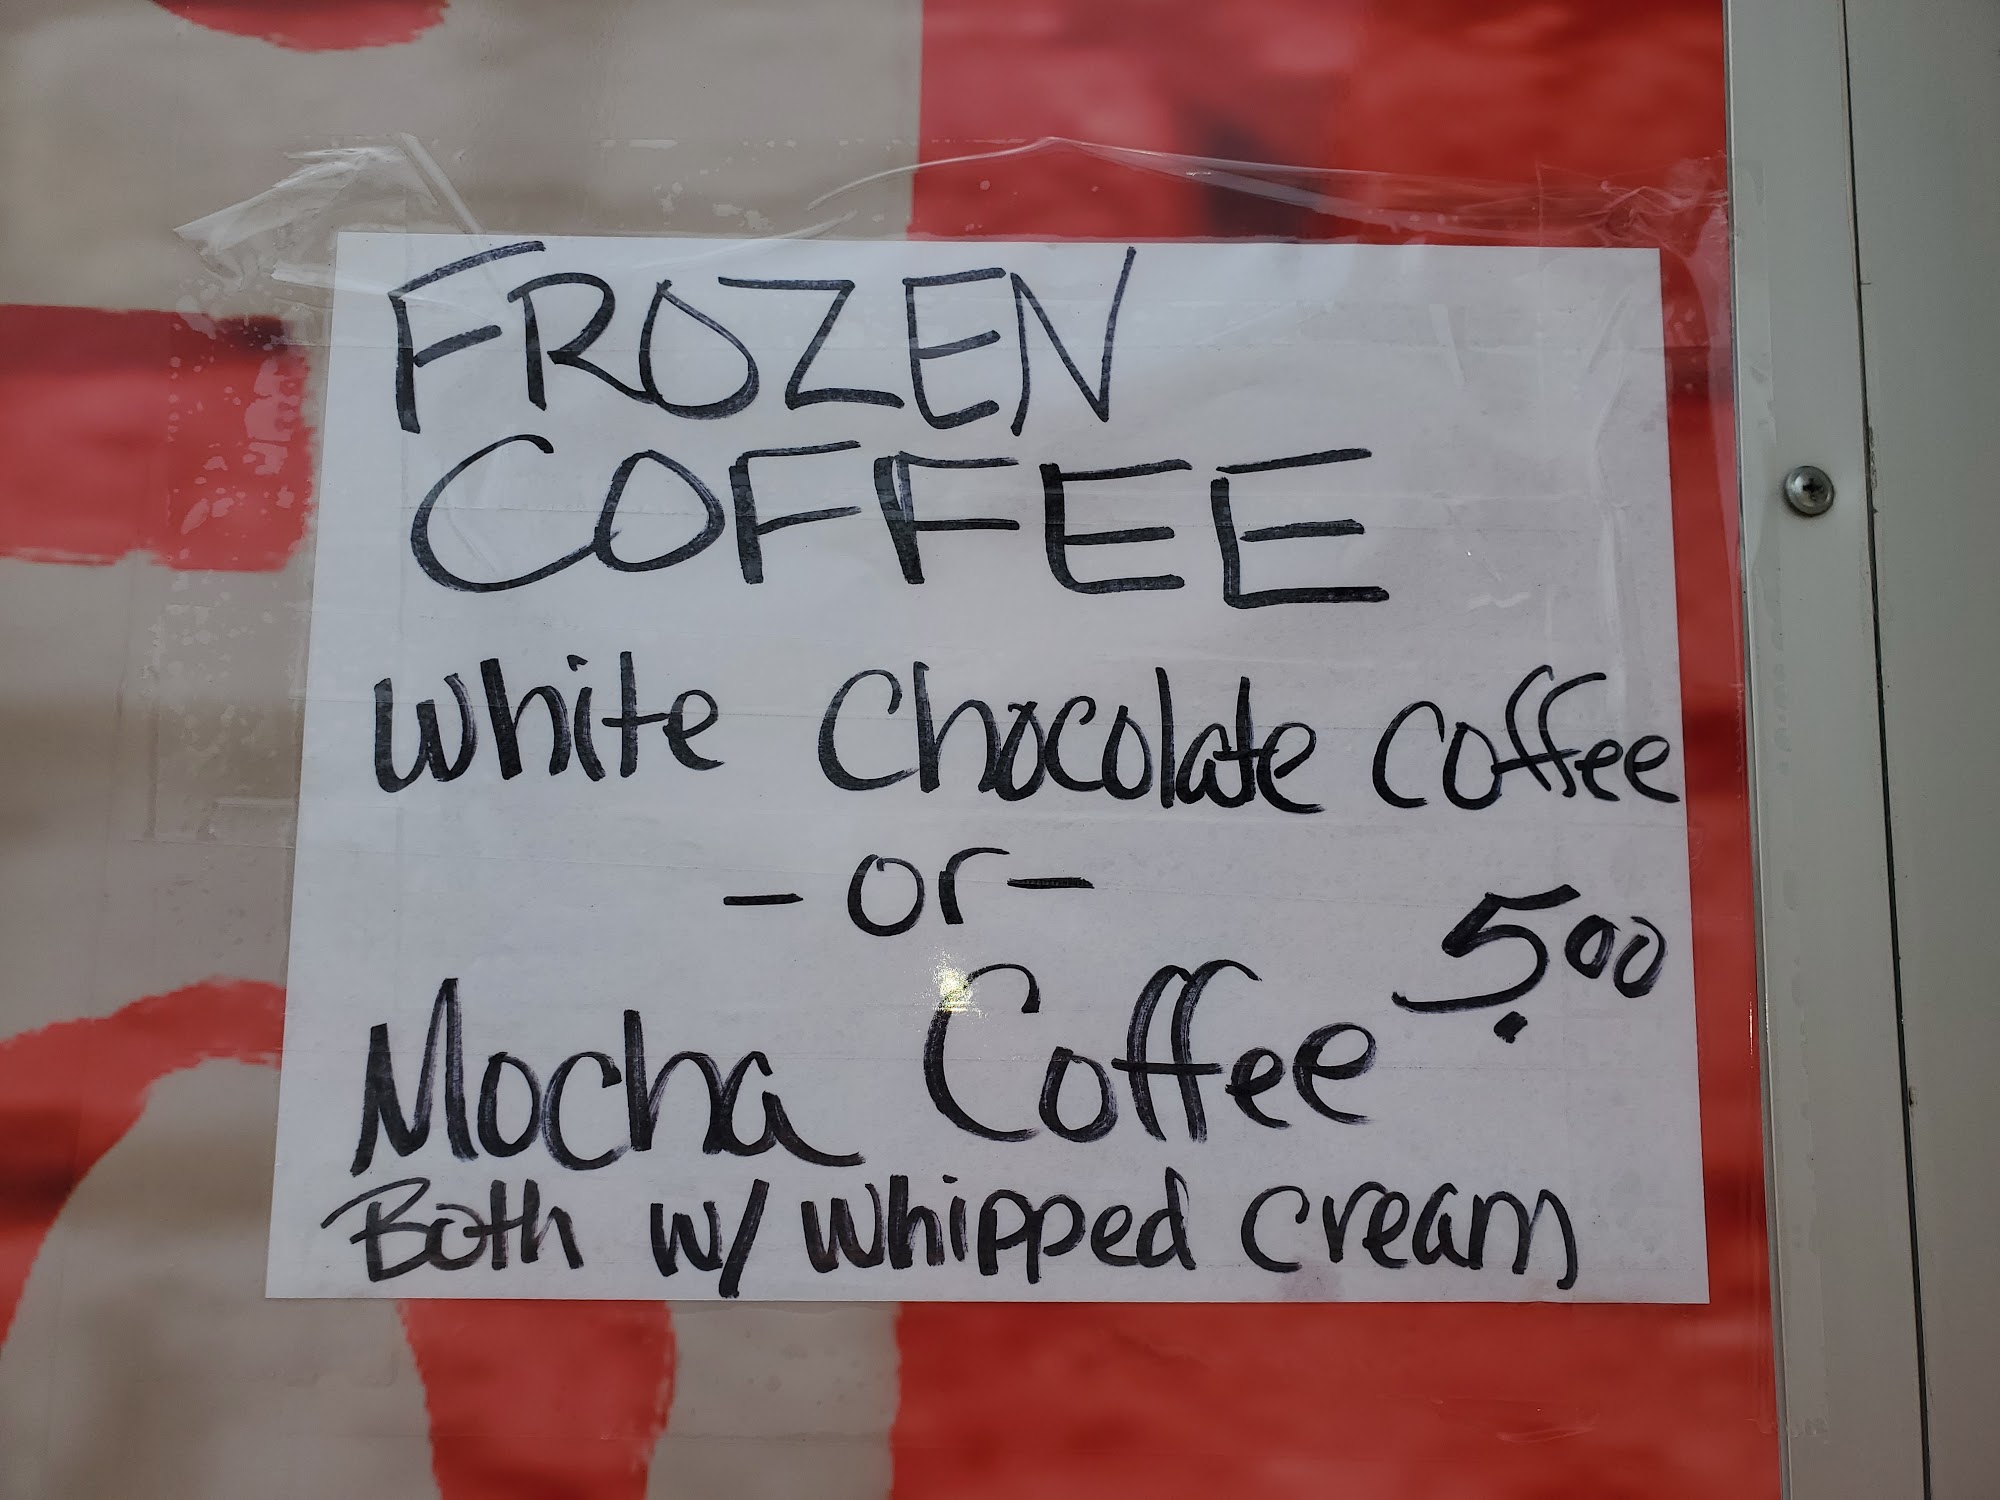 FROZEN
COFFEE
White Chocolate Coffee
- or -
5.00
Mocha Coffee
Both w/ whipped cream